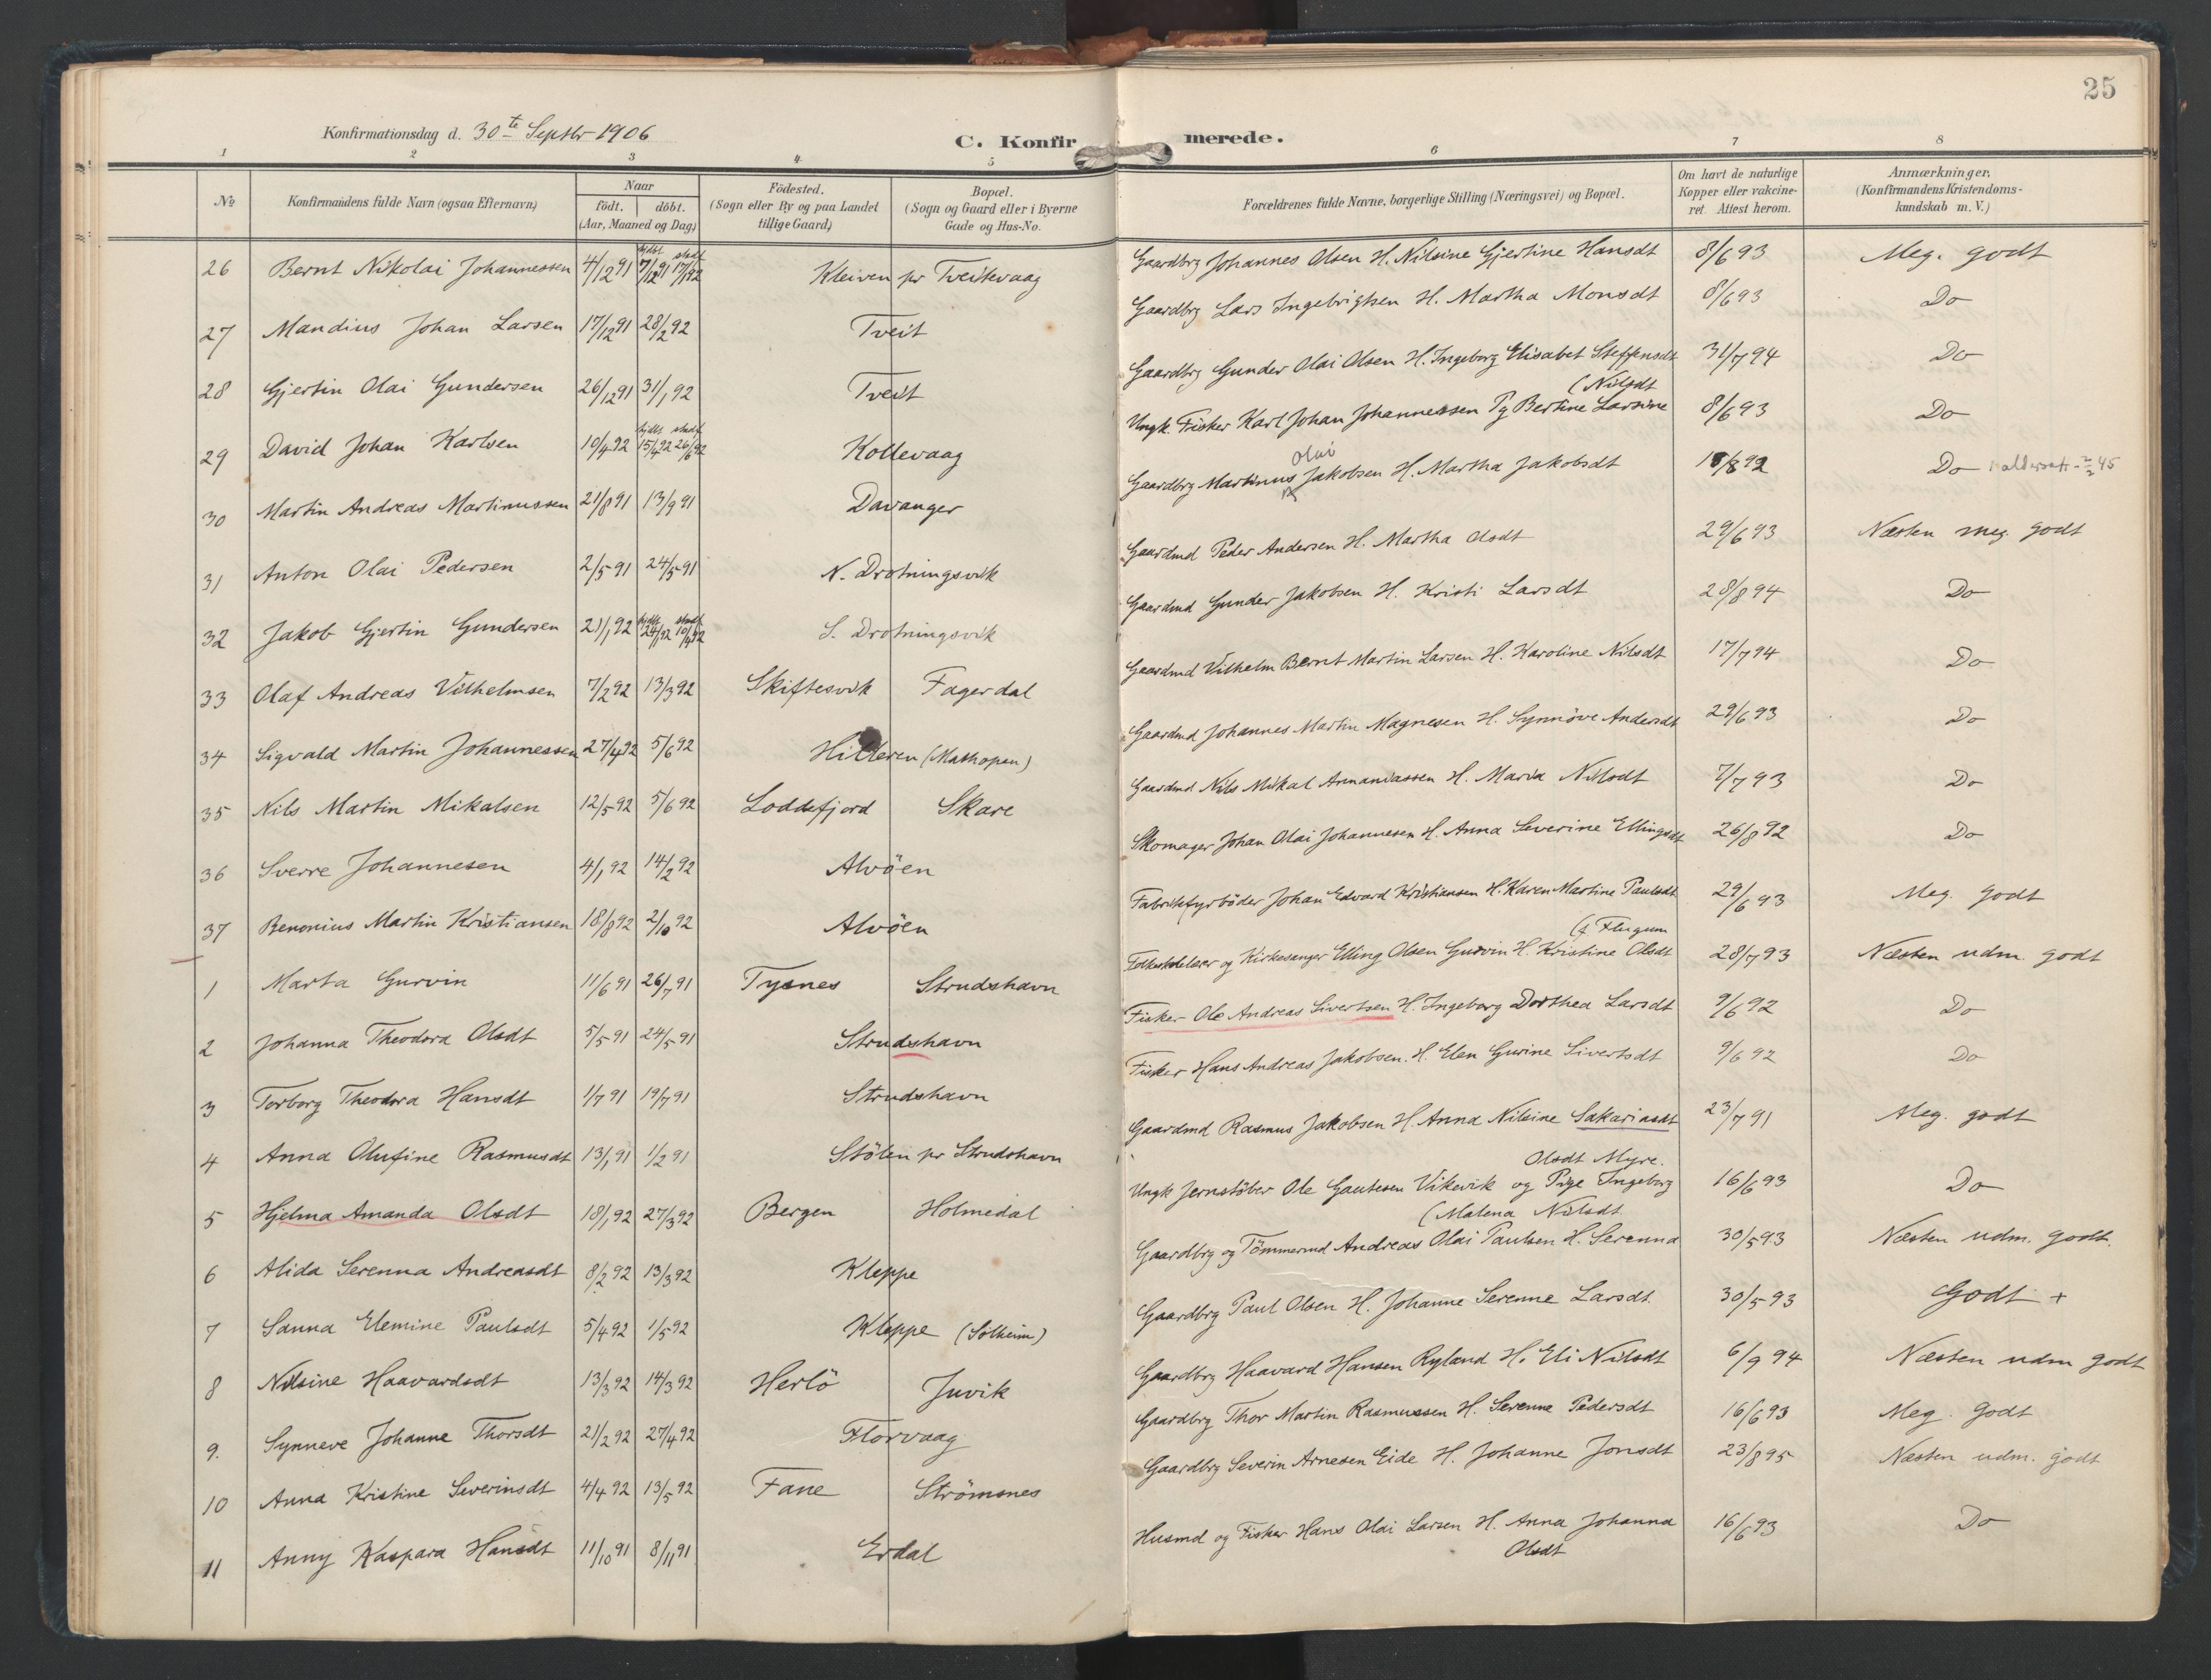 25
Konfirmationsdag d. 30te Septbr 1906
C. Konfirmerede.
1 2 3 4 5 6 7 8
No Konfirmandens fulde Navn (ogsaa Efternavn) Naar født. døbt. (Aar, Maaned og Dag) Födested. (Sogn eller By og paa Landet tillige Gaard) Bopæl. (Sogn og Gaard eller i Byerne Gade og Hus-No. Forældrenes fulde Navne, borgerlige Stilling (Næringsvei) og Bopæl. Om havt de naturlige Kopper eller vakcineret. Attest herom. Anmærkninger. (Konfirmandens Kristendomskundskab m. V.)
26 Bernt Nikolai Johannessen 4/12 91 hjdbt 7/12 91 stadf 17/1 92 Kleiven pr Tveitevaag Gaardbrg Johannes Olsen H. Nilsine Gjertine Hansdt 8/6 93 Meg. godt
27 Mandius Johan Larsen 17/12 91 28/2 92 Tveit Gaardbrg Lars Ingebrigtsen H. Martha Monsdt 8/6 93 Do
28 Gjertin Olai Gundersen 26/12 91 31/1 92 Tveit Gaardbrg Gunder Olai Olsen H. Ingeborg Elisabet Steffensdt 31/7 94 Do
29 David Johan Karlsen 10/4 92 hjdbt 15/4 92 stadf 26/6 92 Kollevaag Ungk. Fisker Karl Johan Johannessen Pg Bertine Larsine (Nilsdt 8/6 93 Do
30 Martin Andreas Martinussen 21/8 91 13/9 91 Davanger Gaardbrg Martinus Olai Jakobsen H. Martha Jakobsdt 18/8 92 Do aldersatt. 2/2 45
31 Anton Olai Pedersen 2/5 91 24/5 91 N. Drotningsvik Gaardmd Peder Andersen H. Martha Olsdt 29/6 93 Næsten meg. godt
32 Jakob Gjertin Gundersen 21/1 92 hjdbt 24/1 92 stadf 10/4 92 S. Drotningsvik Gaardmd Gunder Jakobsen H. Kristi Larsdt 28/8 94 Do
33 Olaf Andreas Vilhelmsen 7/2 92 13/3 92 Skiftesvik Fagerdal Gaardmd Vilhelm Bernt Martin Larsen H. Karoline Nilsdt 17/7 94 Do
34 Sigvald Martin Johannessen 27/4 92 5/6 92 Hilleren (Mathopen) Gaardmd Johannes Martin Magnesen H. Synnöve Andersdt 29/6 93 Do
35 Nils Martin Mikalsen 12/5 92 5/6 92 Loddefjord Skare Gaardmd Nils Mikal Annaniassen H. Maria Nilsdt 7/7 93 Do
36 Sverre Johannesen 4/1 92 14/2 92 Alvöen Skomager Johan Olai Johannesen H. Anna Severine Ellingsdt 26/8 92 Do
37 Benonius Martin Kristiansen 18/8 92 2/10 92 Alvöen Fabrikfyrböder Johan Edvard Kristiansen H. Karen Martine Paulsdt 29/6 93 Meg. godt
1 Marta Gurvin 11/6 91 26/7 91 Tysnes Strudshavn Folkeskolelærer og Kirkesanger Elling Olsen Gurvin H. Kristine Olsdt (f Flugum 28/7 93 Næsten udm. godt
2 Johanna Theodora Olsdt 5/5 91 24/5 91 Strudshavn Fisker Ole Andreas Sivertsen H. Ingeborg Dorthea Larsdt 9/6 92 Do
3 Torborg Theodora Hansdt 1/7 91 19/7 91 Strudshavn Fisker Hans Andreas Jakobsen. H. Elen Gurine Sivertsdt 9/6 92 Do
4 Anna Olufine Rasmusdt 13/1 91 1/2 91 Stölen pr Strudshavn Gaardmd Rasmus Jakobsen H. Anna Nilsine Sakariasdt 23/7 91 Meg. godt
5 Hjelma Amanda Olsdt 18/1 92 27/3 92 Bergen Holmedal Ungk Jernstöber Ole Gautesen Vikevik og Pige Ingeborg Olsdt Myre. 16/6 93 Do
6 Alida Serenna Andreasdt 8/2 92 13/3 92 Kleppe Gaardbrg og Tömmermd Andreas Olai Paulsen H. Serenna (Malena Nilsdt 30/5 93 Næsten udm. godt.
7 Sanna Elemine Paulsdt 5/4 92 1/5 92 Kleppe (Solheim) Gaardbrg Paul Olsen H. Johanne Serenne Larsdt. 30/5 93 Godt +
8 Nilsine Haavardsdt 13/3 92 14/3 92 Herlö Juvik Gaardbrg Haavard Hansen Ryland H. Eli Nilsdt 6/9 94 Næsten udm godt
9. Synneve Johanne Thorsdt 21/2 92 27/4 92 Florvaag Gaardbrg Thor Martin Rasmussen H. Serenne Pedersdt 16/6 93 Meg. godt
10 Anna Kristine Severinsdt 4/4 92 13/5 92 Fane Strömsnes Gaardbrg Severin Arnesen Eide H. Johanne Jonsdt 23/8 95 Næsten udm. godt
11 Anny Kaspara Hansdt 11/10 91 8/11 91 Erdal Husmd og Fisker Hans Olai Larsen H. Anna Johanna Olsdt 16/6 93 Do